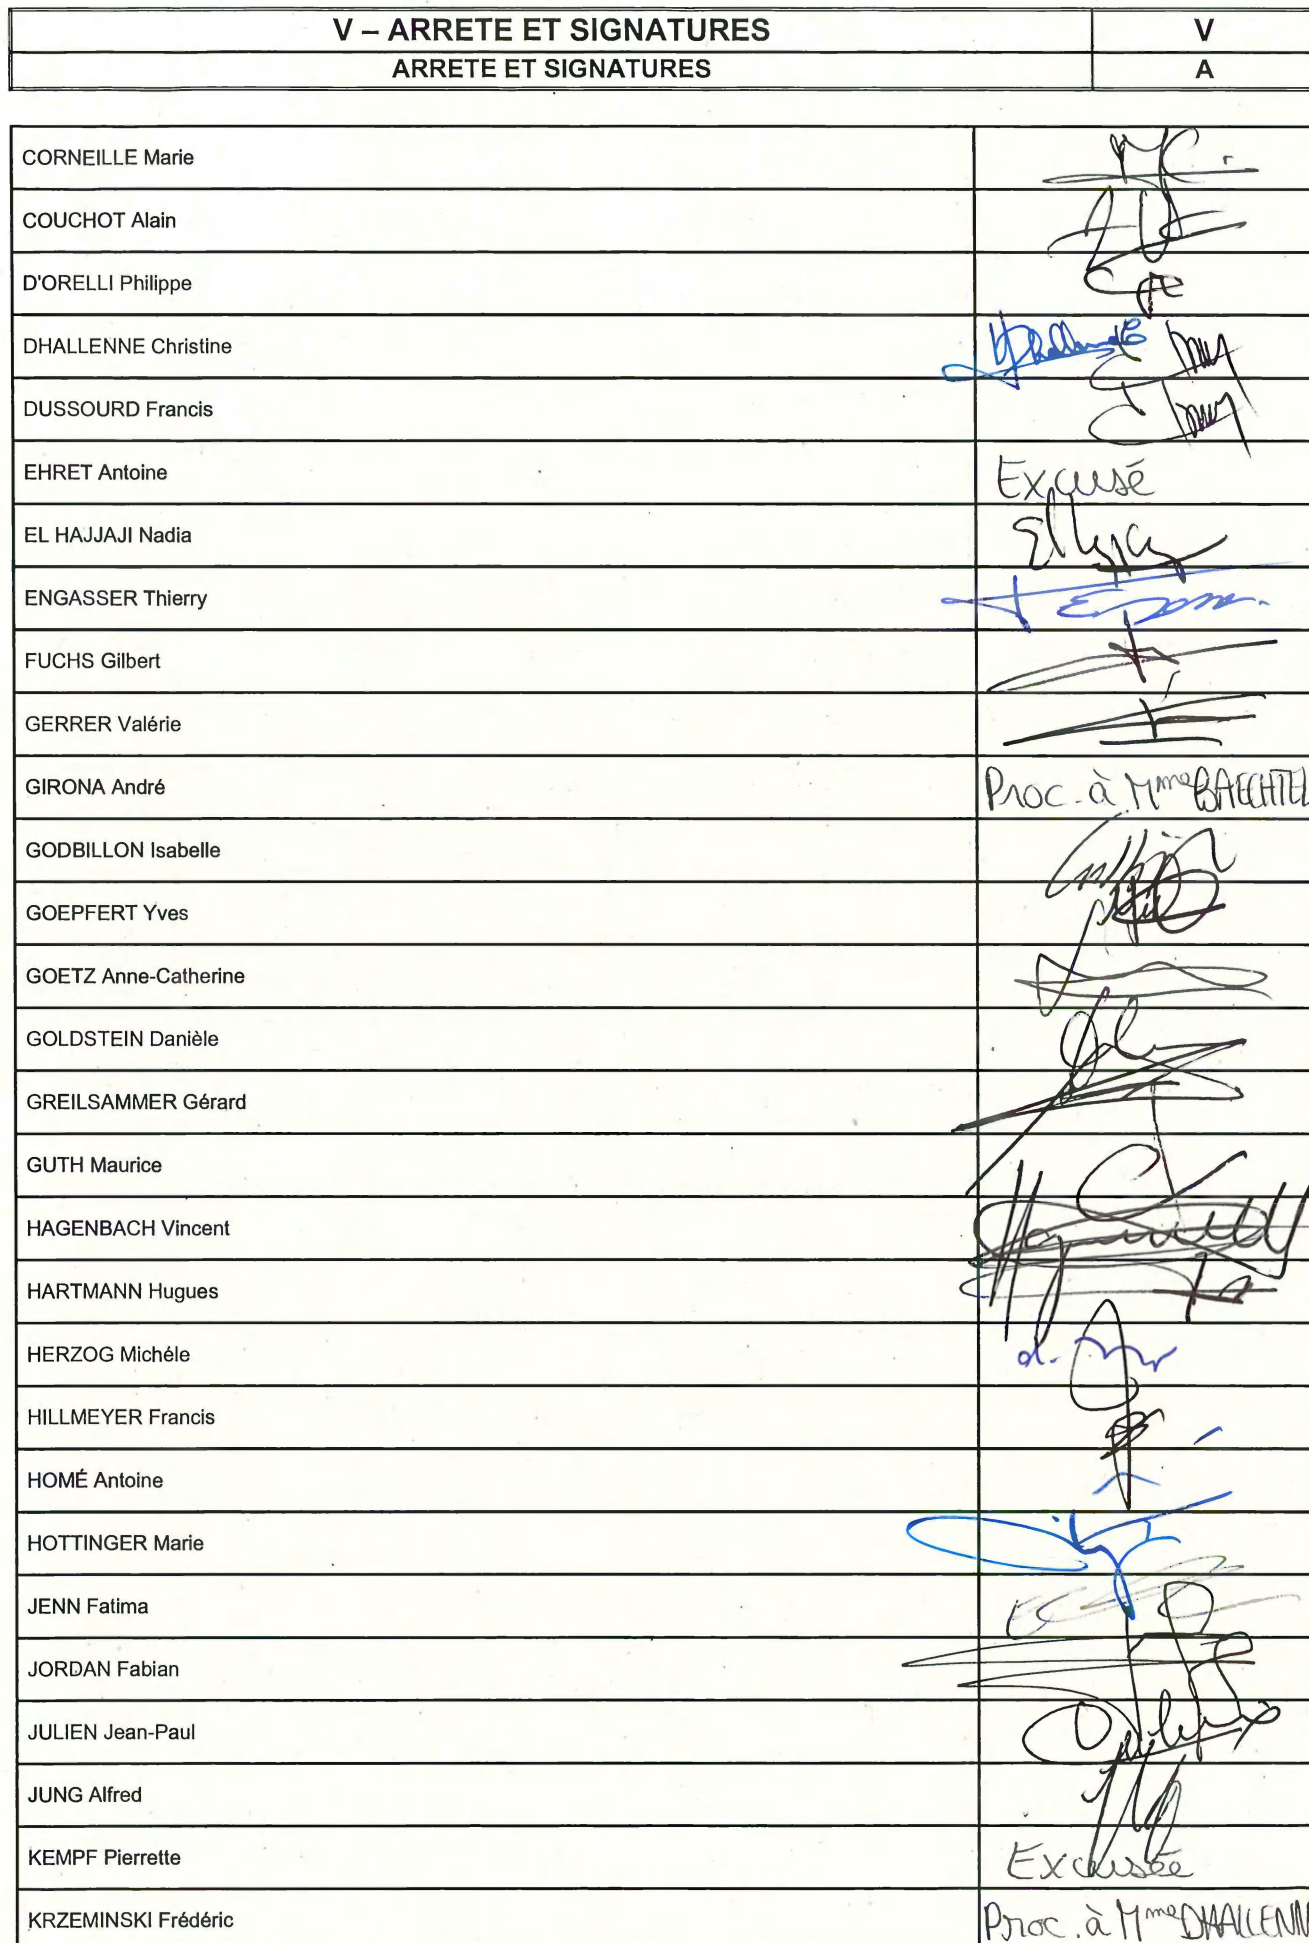 V – ARRETE ET SIGNATURES V
ARRETE ET SIGNATURES A
CORNEILLE Marie
COUCHOT Alain
D'ORELLI Philippe
DHALLENNE Christine
DUSSOURD Francis
EHRET Antoine Excusé
EL HAJJAJI Nadia
ENGASSER Thierry
FUCHS Gilbert
GERRER Valérie
GIRONA André Proc. à Mme BAECHTEL
GODBILLON Isabelle
GOEPFERT Yves
GOETZ Anne-Catherine
GOLDSTEIN Danièle
GREILSAMMER Gérard
GUTH Maurice
HAGENBACH Vincent
HARTMANN Hugues
HERZOG Michéle
HILLMEYER Francis
HOMÉ Antoine
HOTTINGER Marie
JENN Fatima
JORDAN Fabian
JULIEN Jean-Paul
JUNG Alfred
KEMPF Pierrette Excusée
KRZEMINSKI Frédéric Proc. à Mme DHALLENN